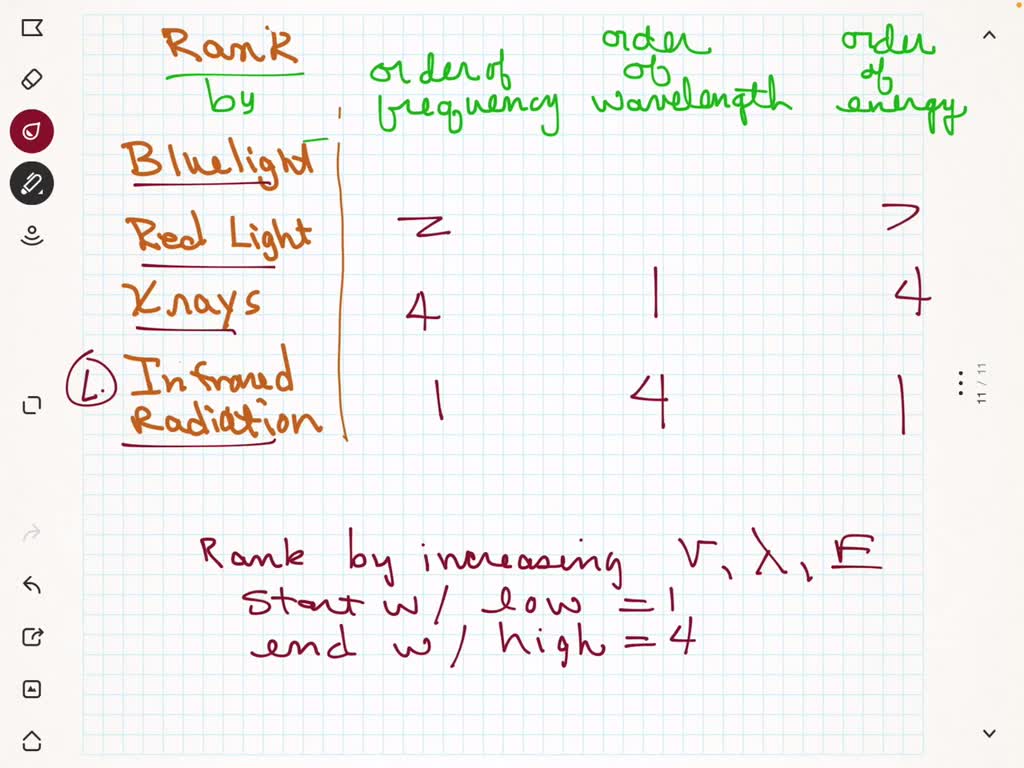 Rank
by
order of
frequency
order
of
wavelength
order
of
energy
Blue light
Red Light
2
X rays
4
1
4
L.
Infrared
Radiation
1
4
1
Rank by increasing ν, λ, E
Start w/ low = 1
end w/ high = 4
11 / 11